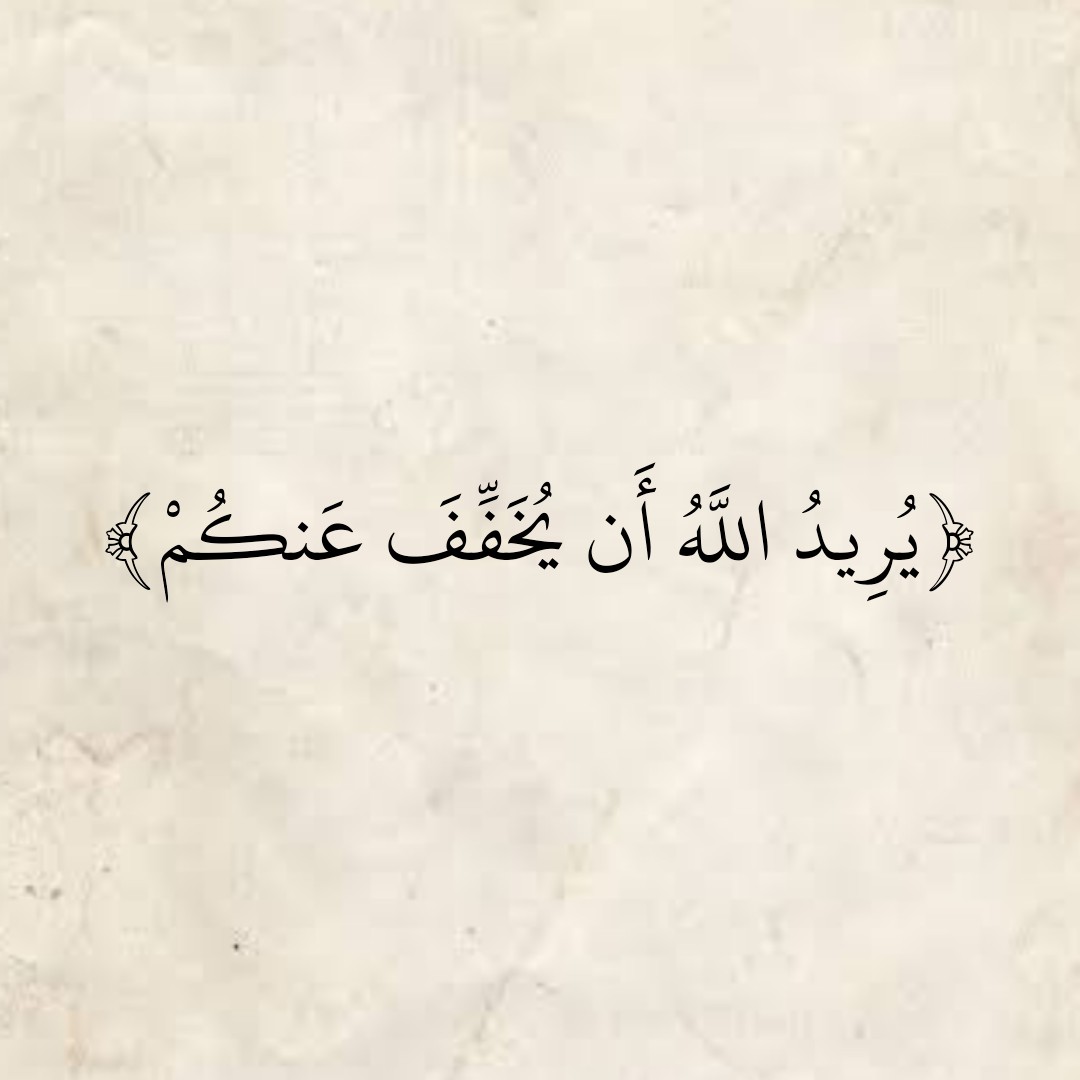 ﴿يُرِيدُ اللَّهُ أَن يُخَفِّفَ عَنكُمْ﴾